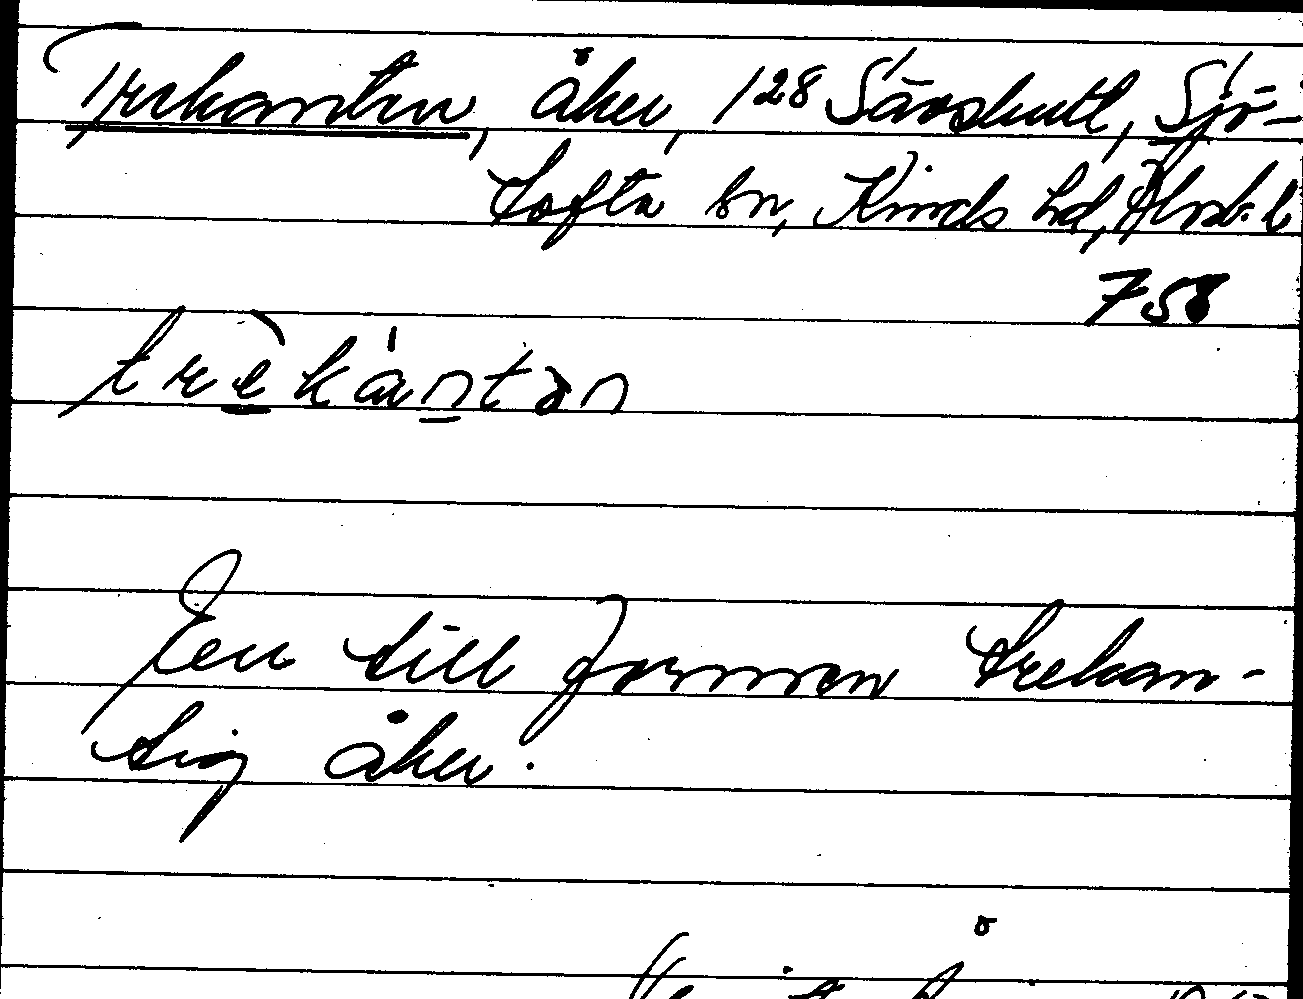 Trekanten, åker, 128 Sävshult, Sjö-
tofta sn, Kinds hd, Älvsb. l
758
trèkántən
En till formen trekan-
tig åker.